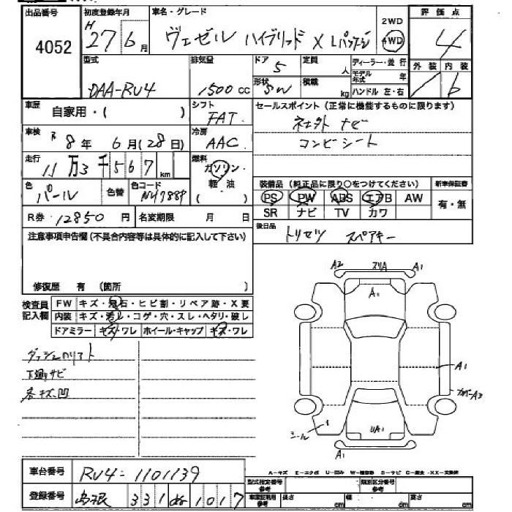 出品番号 初度登録年月 車名・グレード 2WD 評価点
4052 H 27年6月 ヴェゼル ハイブリッド X Lパッケージ 4WD 4
型式 排気量 ドア 定員 ディーラー・並行 外装 内装
DAA-RU4 1500cc 5 形状 SW 人 積載 kg モデル年式 年 ハンドル 左・右 1 b
車歴 自家用・( ) シフト FAT セールスポイント(正常に機能するものに限ります)
車検 R 8年 6月(28日) 冷房 AAC ナビ
コンビシート
走行 11万3千567km 燃料 ガソリン 軽油
色 パール 色替 色コード NH788P 装備品(純正品に限り○をつけてください) 新車保証書
PS PW ABS エアB AW 有・無
SR ナビ TV カワ
R券 12850円 名変期限 月 日 後日品 トリセツ スペアキー
注意事項申告欄(不具合内容等は具体的に記入して下さい)
修復歴 有 (箇所 )
検査員記入欄 FW キズ・飛石・ヒビ割・リペア跡・X要
内装 キズ・汚レ・コゲ・穴・スレ・ヘタリ・破レ
ドアミラー キズ・ワレ ホイール・キャップ キズ・ワレ
下廻サビ
各キズ凹
A2 スリA A1
A1
A1
A1
UA1
A1
車台番号 RU4-1101139
登録番号 島根 331 1017
型式指定番号 参考 類別区分番号 参考
車輌詳細用 参考 長さ cm 幅 cm 高さ cm